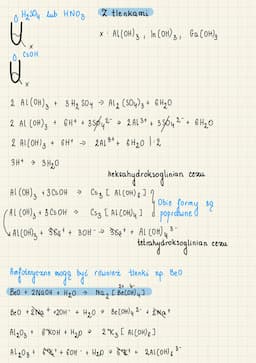 H₂SO₄ lub HNO₃
z tlenkami
x
x : Al(OH)₃ , In(OH)₃ , Ga(OH)₃
CsOH
x
2 Al(OH)₃ + 3H₂SO₄ → Al₂(SO₄)₃ + 6H₂O
2 Al(OH)₃ + 6H⁺ + 3SO₄²⁻ → 2Al³⁺ + 3SO₄²⁻ + 6H₂O
2 Al(OH)₃ + 6H⁺ → 2Al³⁺ + 6H₂O |:2
3H⁺ → 3H₂O
heksahydroksoglinian cezu
Al(OH)₃ + 3CsOH → Cs₃[Al(OH)₆]
Obie formy są
Al(OH)₃ + 3CsOH → Cs₃[Al(OH)₄]
poprawne
Al(OH)₃ + 3Cs⁺ + 3OH⁻ → 3Cs⁺ + Al(OH)₄³⁻
tetrahydroksoglinian cezu
Amfoteryczne mogą być również tlenki np BeO
BeO + 2NaOH + H₂O → Na₂[Be(OH)₄]
BeO + 2Na⁺ + 2OH⁻ + H₂O → Be(OH)₄²⁻ + 2Na⁺
Al₂O₃ + 6KOH + H₂O → 2K₃[Al(OH)₆]
Al₂O₃ + 6K⁺ + 6OH⁻ + H₂O → 6K⁺ + 2Al(OH)₆³⁻